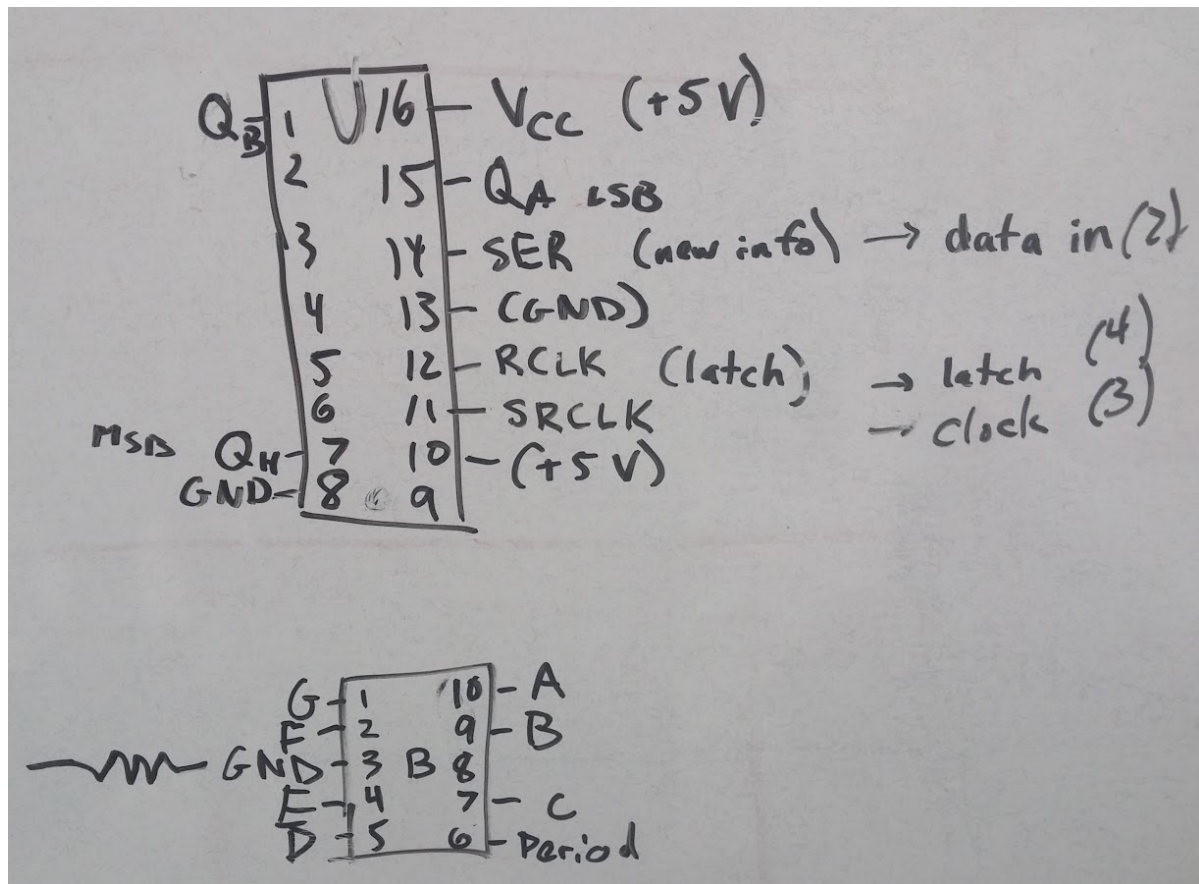 QB 1 16 VCC (+5 V)
2 15 QA LSB
3 14 SER (new info) → data in (2)
4 13 (GND)
5 12 RCLK (latch) → latch (4)
6 11 SRCLK → clock (3)
MSB QH 7 10 (+5 V)
GND 8 9
G 1 10 A
F 2 9 B
GND 3 B 8
E 4 7 C
D 5 6 Period